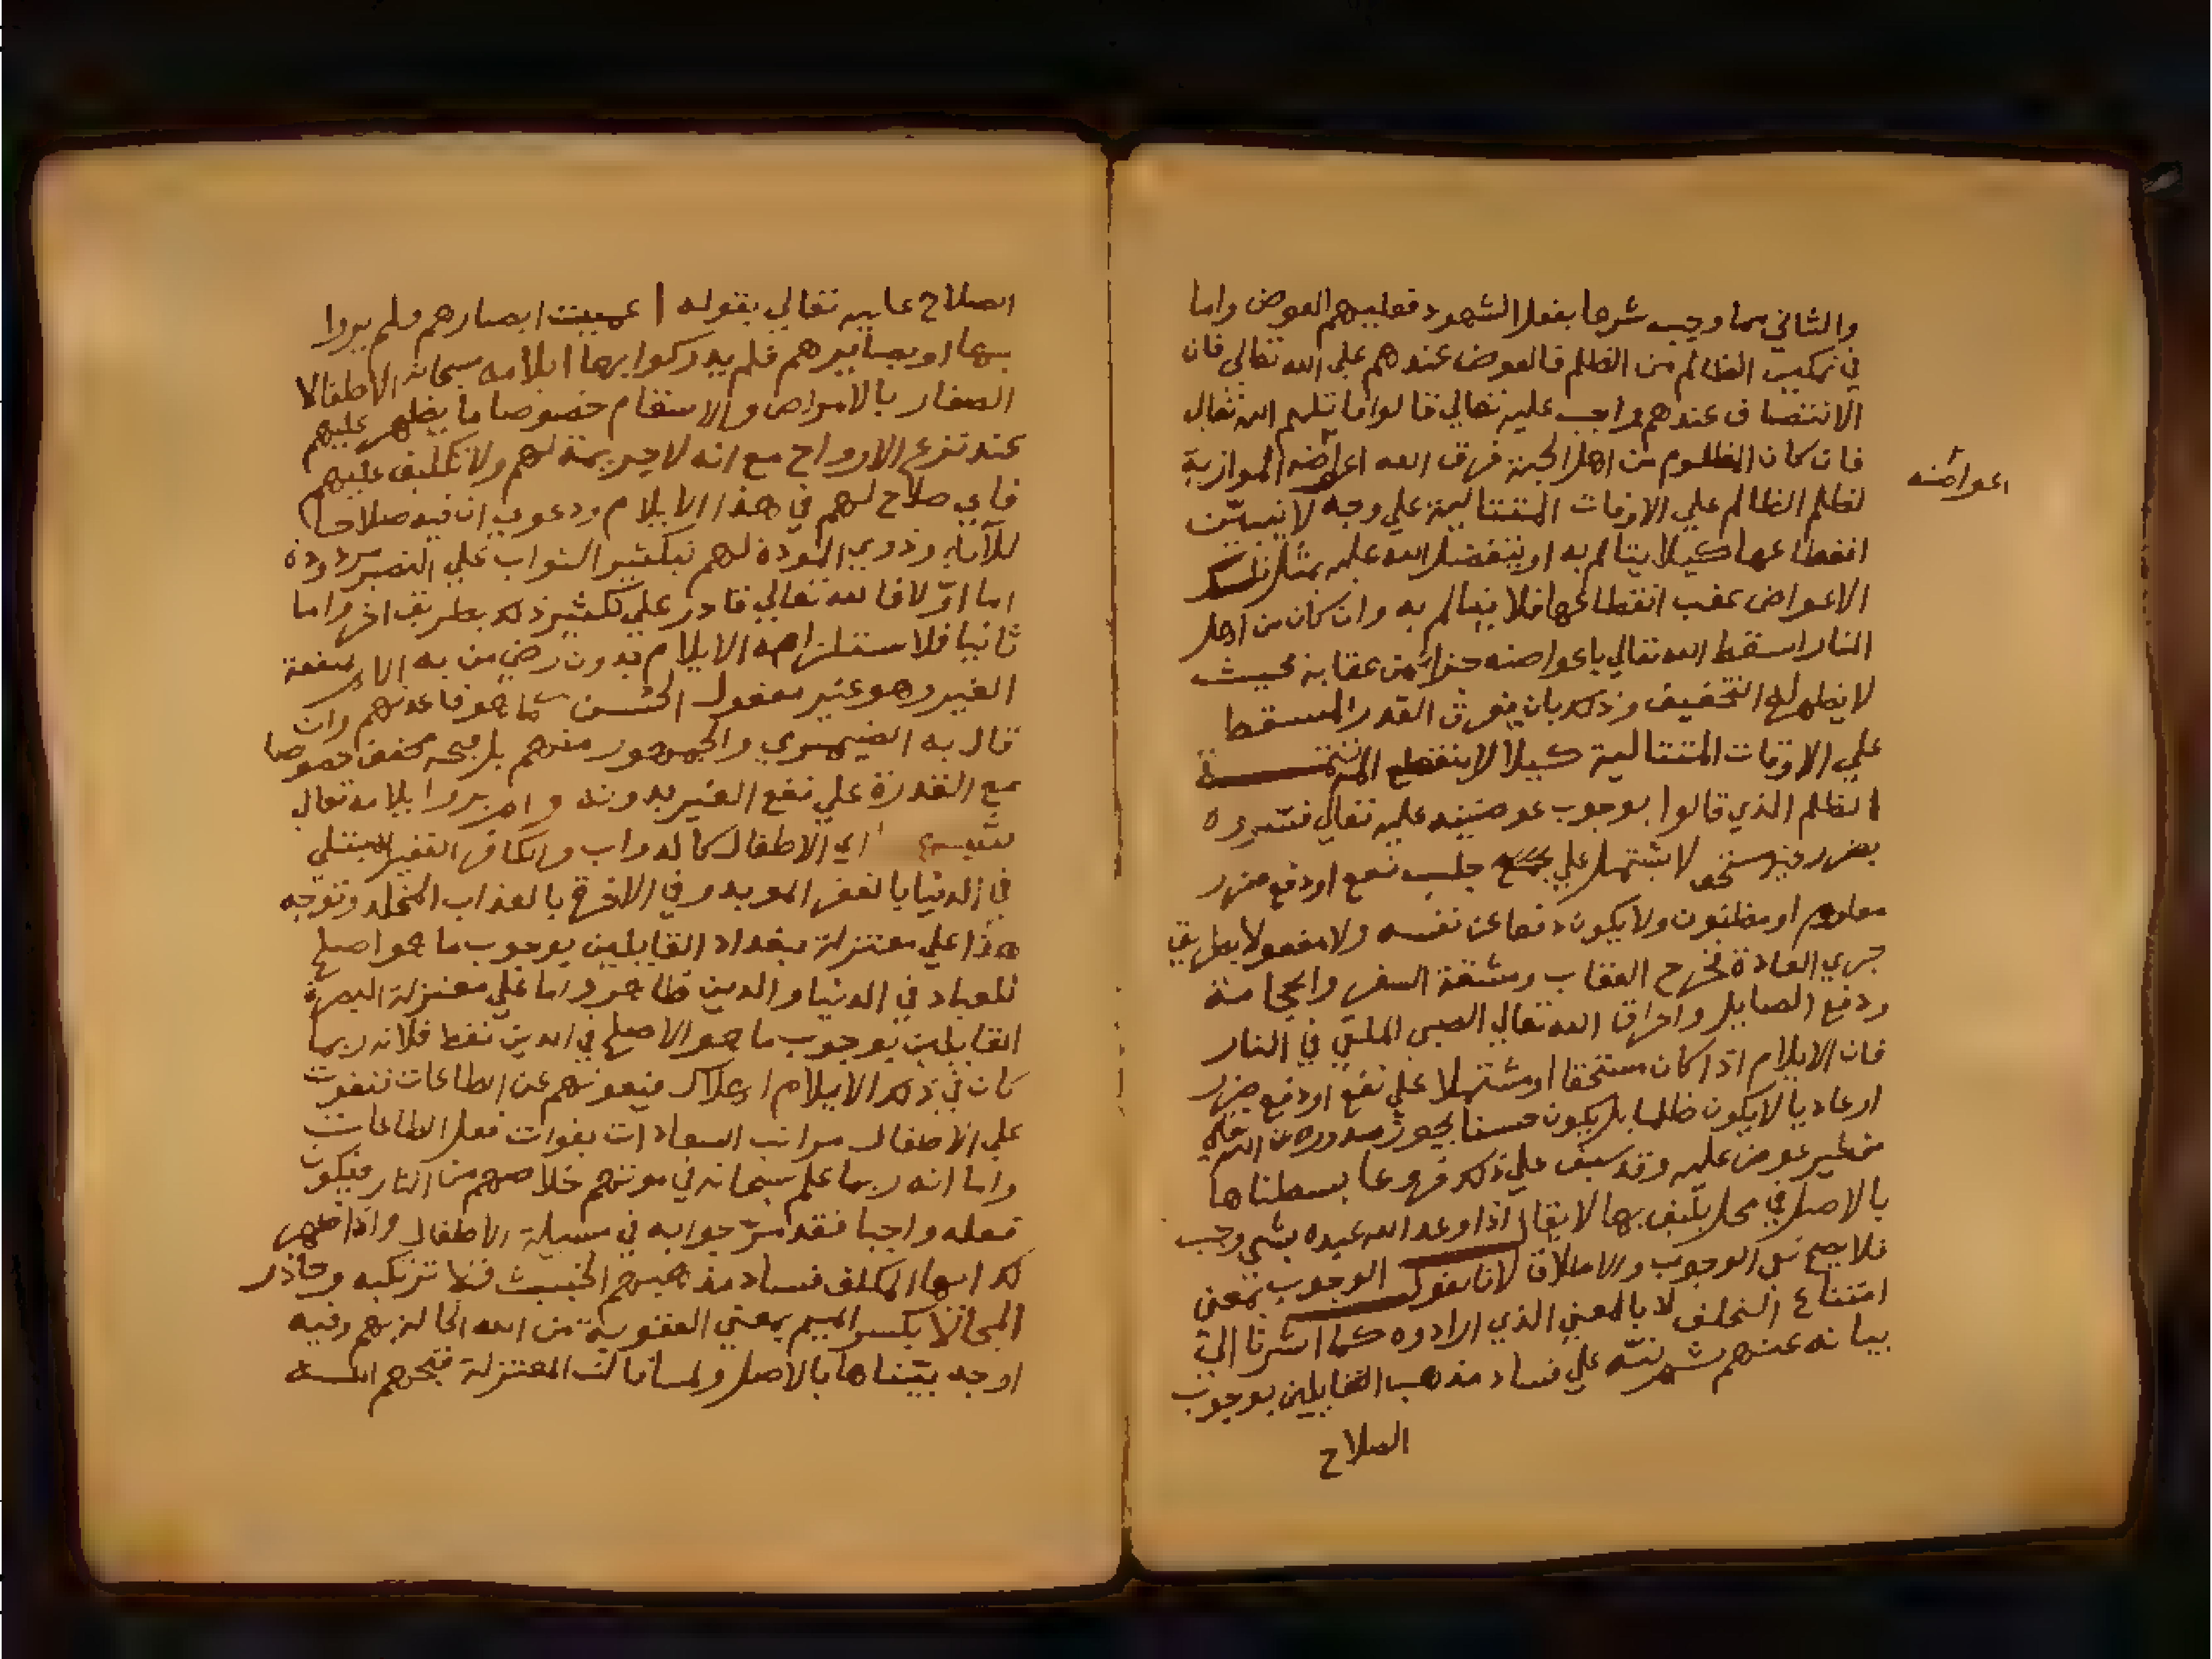 والثاني مما وجب شرعا بفعل الشهود فعليهم العوض واما
في تمكين الظالم من الظلم فالعوض عندهم علي الله تعالي فان
الانتصاف عندهم واجب عليه تعالي قالوا فايلام الله تعالى
فان كان المظلوم من اهل الجنة فرق الله اعواضه الموازية
اعواضه
لظلم الظالم علي الاوقات المتتالية علي وجه لا يتبين
انقطاعها كيلا يتالم به او يتفضل الله عليه بمثل تلك
الاعواض عقب انقطاعها فلا يتالم به وان كان من اهل
النار اسقط الله تعالي باعواضه جزاء من عقابه بحيث
لا يظهر له التخفيف وذلك بان يفرق القدر المسقط
علي الاوقات المتتالية كيلا لا ينقطع
الظلم الذي قالوا بوجوب عوضيته عليه تعالي فسروه
بضرر غير مستحق لا يشتمل علي جلب نفع او دفع ضرر
معلوم او مظنون ولا يكون دفعا عن نفسه ولا مفعولا بطريق
جري العادة فخرج العقاب ومشقة السفر والحجامة
ودفع الصايل واحراق الله تعالي الصبي الملقي في النار
فان الايلام اذا كان مستحقا او مشتملا علي نفع او دفع ضرر
او عاديا لا يكون ظلما بل يكون حسنا يجوز صدوره من الله تعالي
من غير عوض عليه وقد سيق علي ذلك فروعا بسطناها
بالاصل في محل يليق بها لا يقال اذا وعد الله عبيده بشي وجب
فلا يصح نفي الوجوب والاطلاق لانا نقول الوجوب بمعني
امتناع التخلف لا بالمعني الذي ارادوه كما اشرنا الي
بيانه عنهم ثم نبه علي فساد مذهب القايلين بوجوب
الصلاح
الصلاح عليه تعالي بقوله عميت ابصارهم فلم يروا
بها او بصايرهم فلم يدركوا بها ايلامه سبحانه الاطفالا
الصغار بالامراض والاسقام خصوصا ما يظهر عليهم
عند نزع الارواح مع انه لا جريمة لهم ولا تكليف عليهم
فاي صلاح لهم في هذا الايلام ودعوي ان فيه صلاحا
للآباء وذوي المودة لهم بتكثير الثواب علي الصبر مردودة
اما اوّلا فالله تعالي قادر علي تكثير ذلك بطريق اخر واما
ثانيا فلاستلزامه الايلام بدون رضي من به الا لمنفعة
الغير وهو غير معقول الحسن كما هو قاعدتهم وان
قال به الضيمري والجمهور منهم بل قبحه محقق خصوصا
مع القدرة علي نفع الغير بدونه ولم يروا ايلامه تعالي
شبههم اي الاطفال كالدواب والكافر الفقير المبتلي
في الدنيا بالفقر المويد وفي الاخرة بالعذاب المخلد وتوجه
هذا علي معتزلة بغداد القايلين بوجوب ما هو اصلح
للعباد في الدنيا والدين ظاهر واما علي معتزلة البصرة
القايلين بوجوب ما هو الاصلح في الدين فقط فلانه ربما
كان في ذلك الايلام اهلاك فيعوقهم عن الطاعات فتفوت
علي الاطفال مراتب السعادات بفوات فعل الطاعات
واما انه ربما علم سبحانه في موتهم خلاصهم من النار فيكون
فعله واجبا فقد مرّ جوابه في مسيلة الاطفال واذا ظهر
لك ايها المكلف فساد مذهبهم الخبيث فلا ترتكبه وحاذر
المحالا بكسر الميم بمعني العقوبة من الله الحالة بهم وفيه
اوجه بيّناها بالاصل ولما نالت المعتزلة قبحهم الله